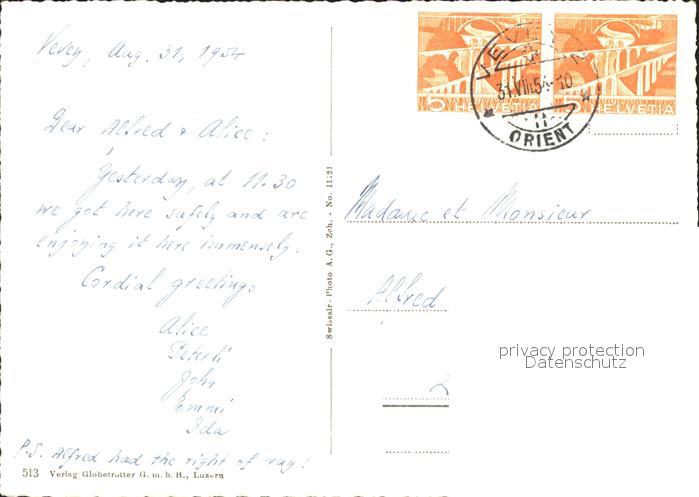 Vevey, Aug. 31, 1954
Dear Alfred & Alice:
Yesterday, at 11.30
we got here safely and are
enjoying it here immensely.
Cordial greetings
Alice
Peterli
John
Emmi
Ida
P.S. Alfred had the right of way!
513 Verlag Globetrotter G.m.b.H., Luzern
Swissair-Photo A.G., Zch. - No. 11121
5 HELVETIA
5 HELVETIA
VEVEY 2
31.VIII.54-10
ORIENT
Madame et Monsieur
Alfred
privacy protection
Datenschutz